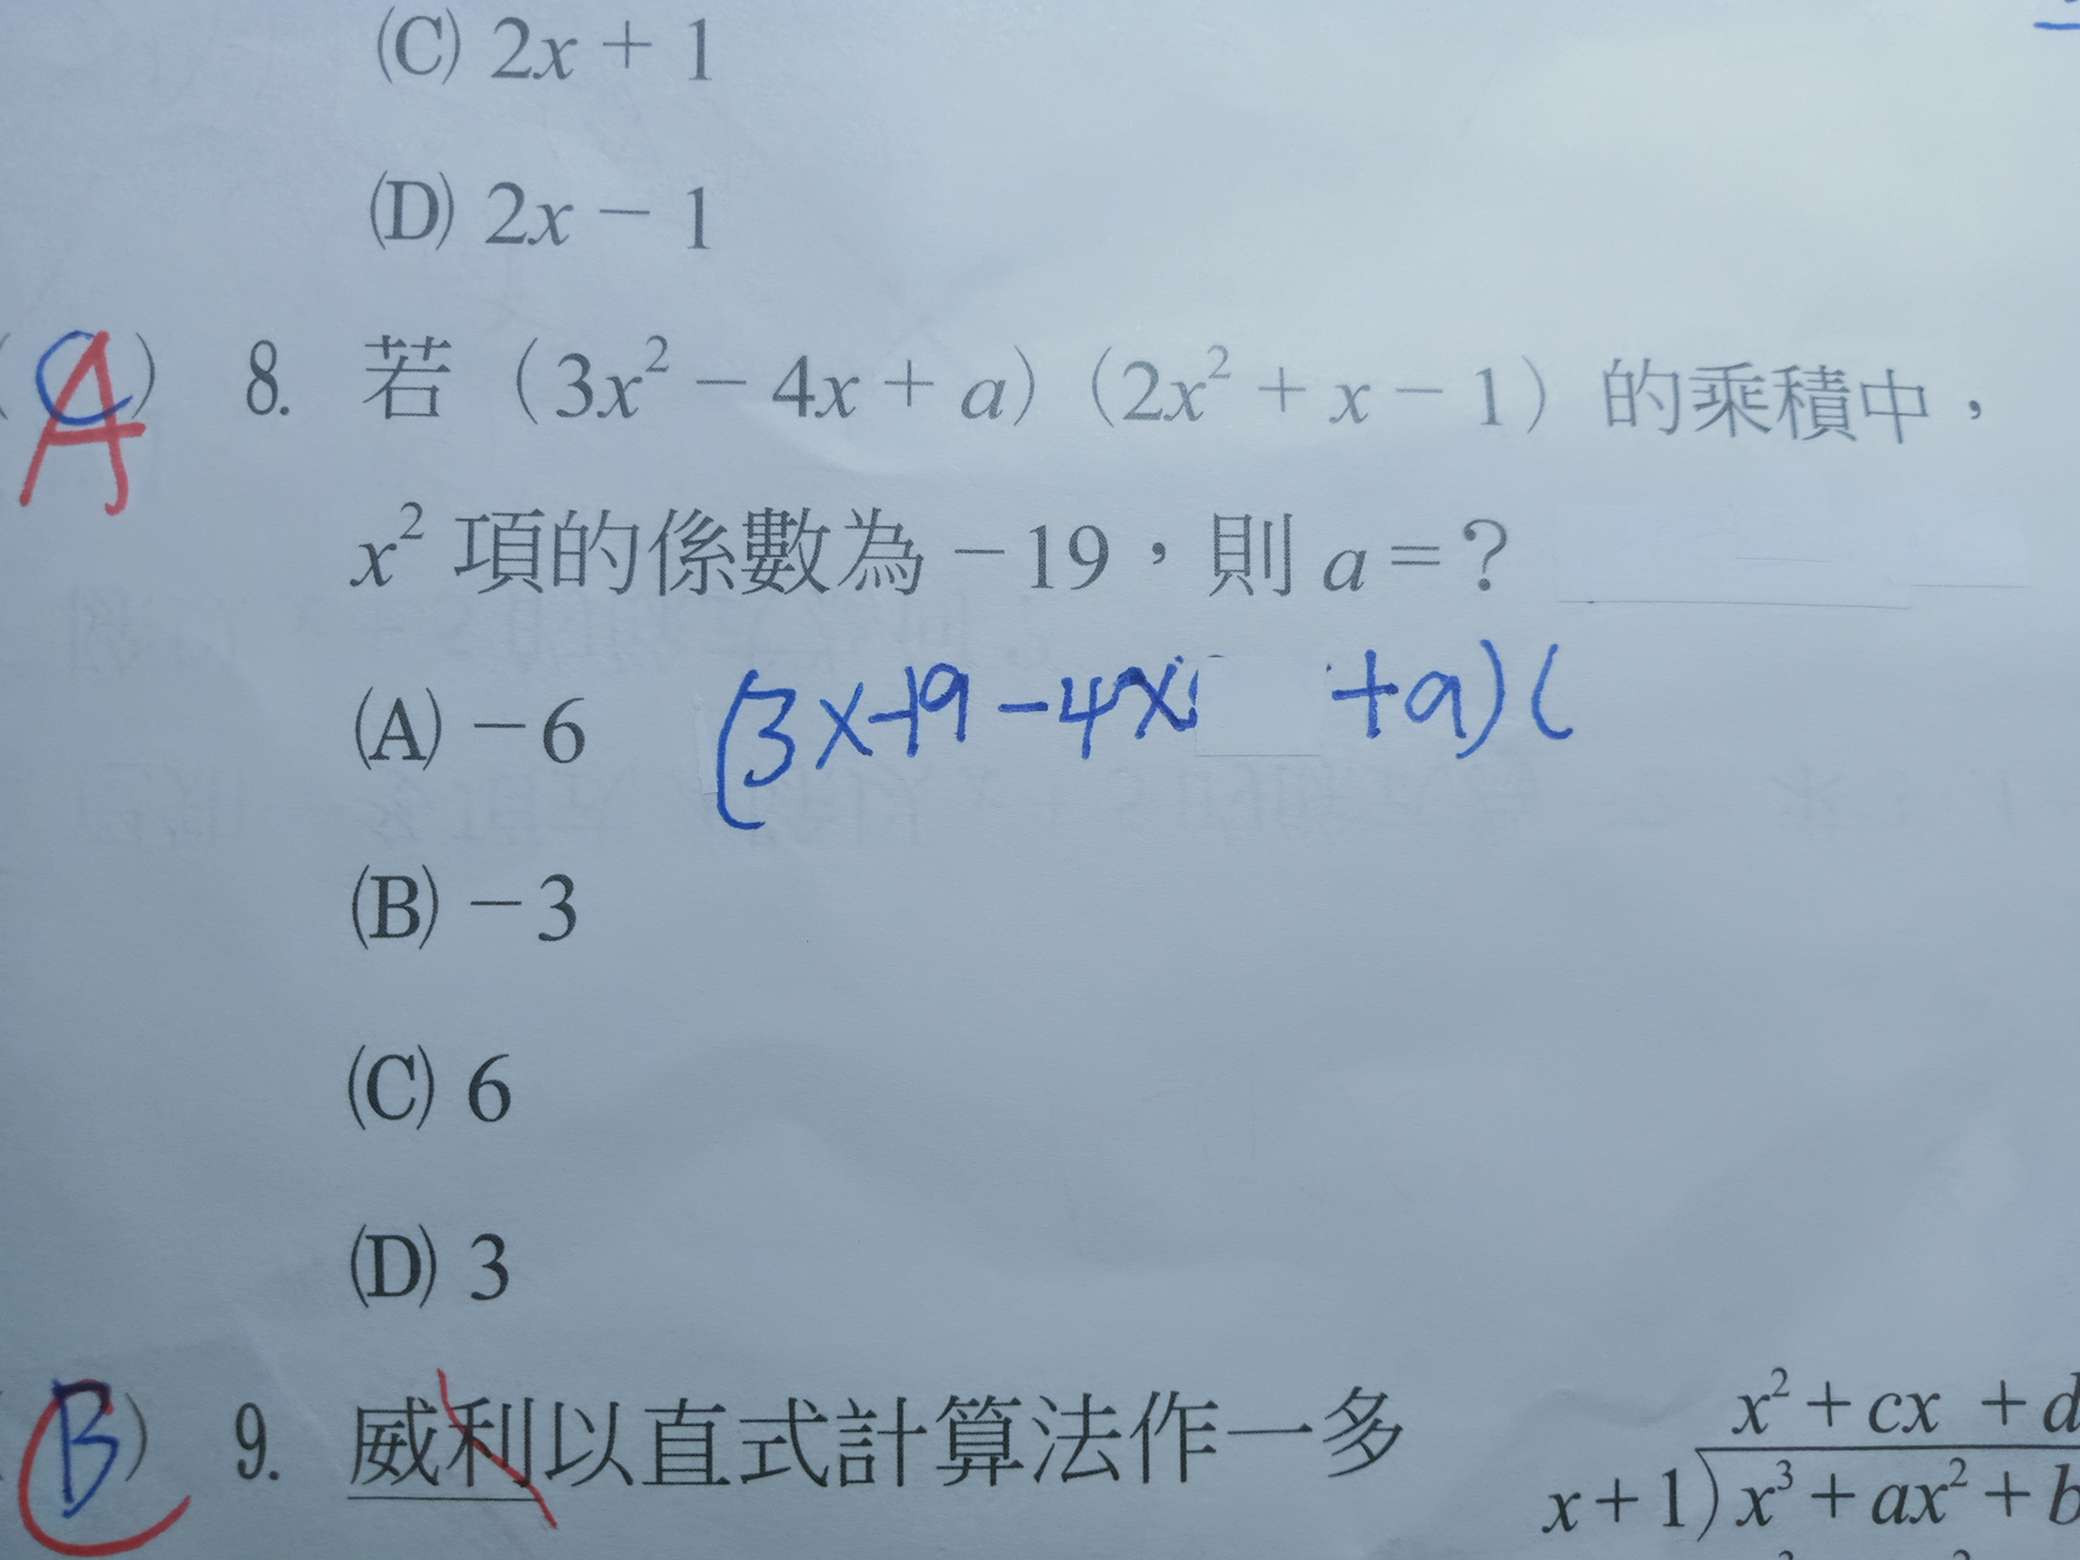 (C) 2x + 1
(D) 2x − 1
(C) A 8. 若 (3x² − 4x + a) (2x² + x − 1) 的乘積中，
x² 項的係數為 −19，則 a = ?
(A) −6 (3x-19-4x +a)(
(B) −3
(C) 6
(D) 3
(B) 9. 威利以直式計算法作一多
x² + cx + d
x + 1) x³ + ax² + b